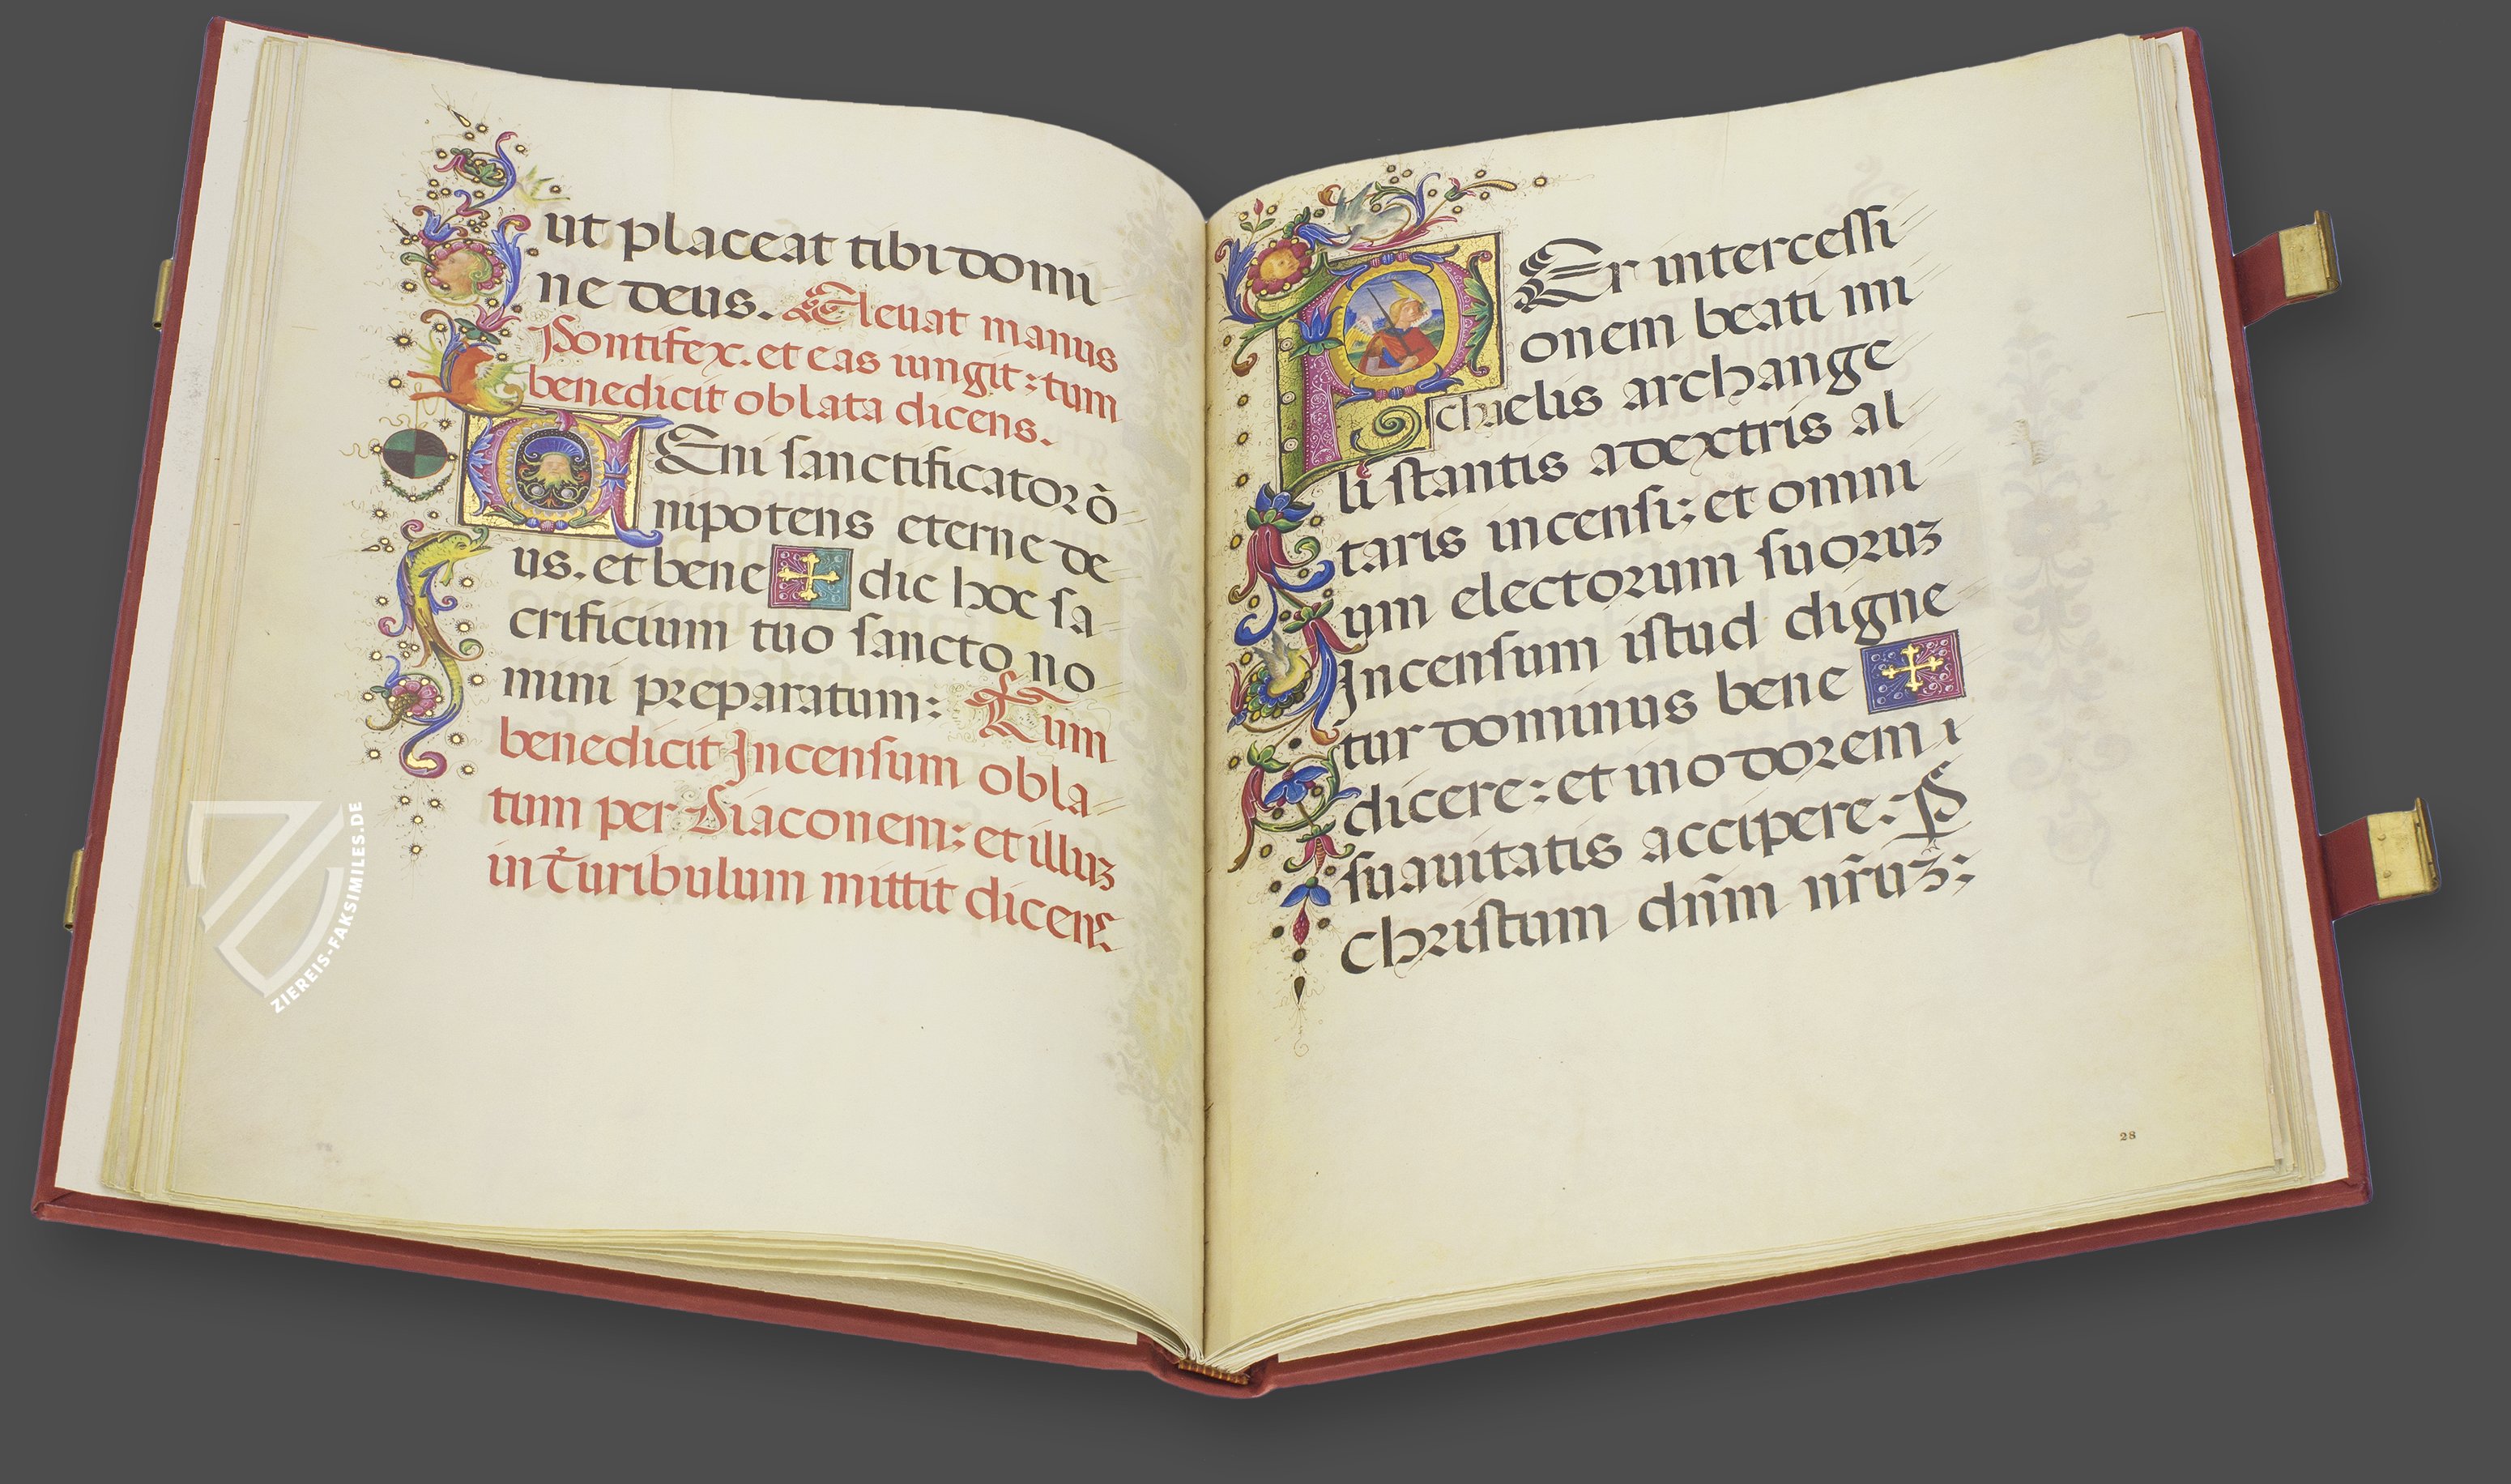 ut placeat tibi domi
ne deus. Eleuat manus
Pontifex. et eas iungit: tum
benedicit oblata dicens.
UEni sanctificator õ
nipotens eterne de
us. et bene ✠ dic hoc sa
crificium tuo sancto no
mini preparatum: Tum
benedicit Incensum obla
tum per Diaconem: et illuꝫ
in Turibulum mittit dicens.
PEr intercessi
onem beati mi
chaelis archange
li stantis a dextris al
taris incensi: et omni
um electorum suoruꝫ
Incensum istud digne
tur dominus bene ✠
dicere: et in odorem i
suauitatis accipere. P
Christum dñm nr̃uꝫ:
28
ZIEREIS-FAKSIMILES.DE